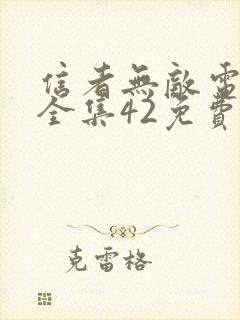 信者無敵電
全集42免費
克雷格